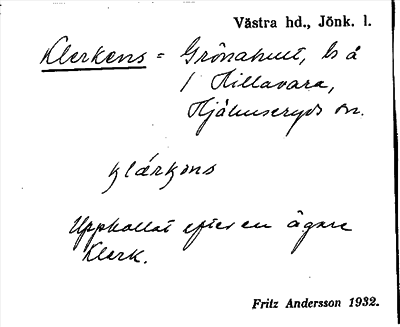 Västra hd., Jönk. l.
Klerkens = Grönahult, ls å
1 Killavara,
Hjälmseryds sn.
klärkəns
Uppkallat efter en ägare
Klerk.
Fritz Andersson 1932.